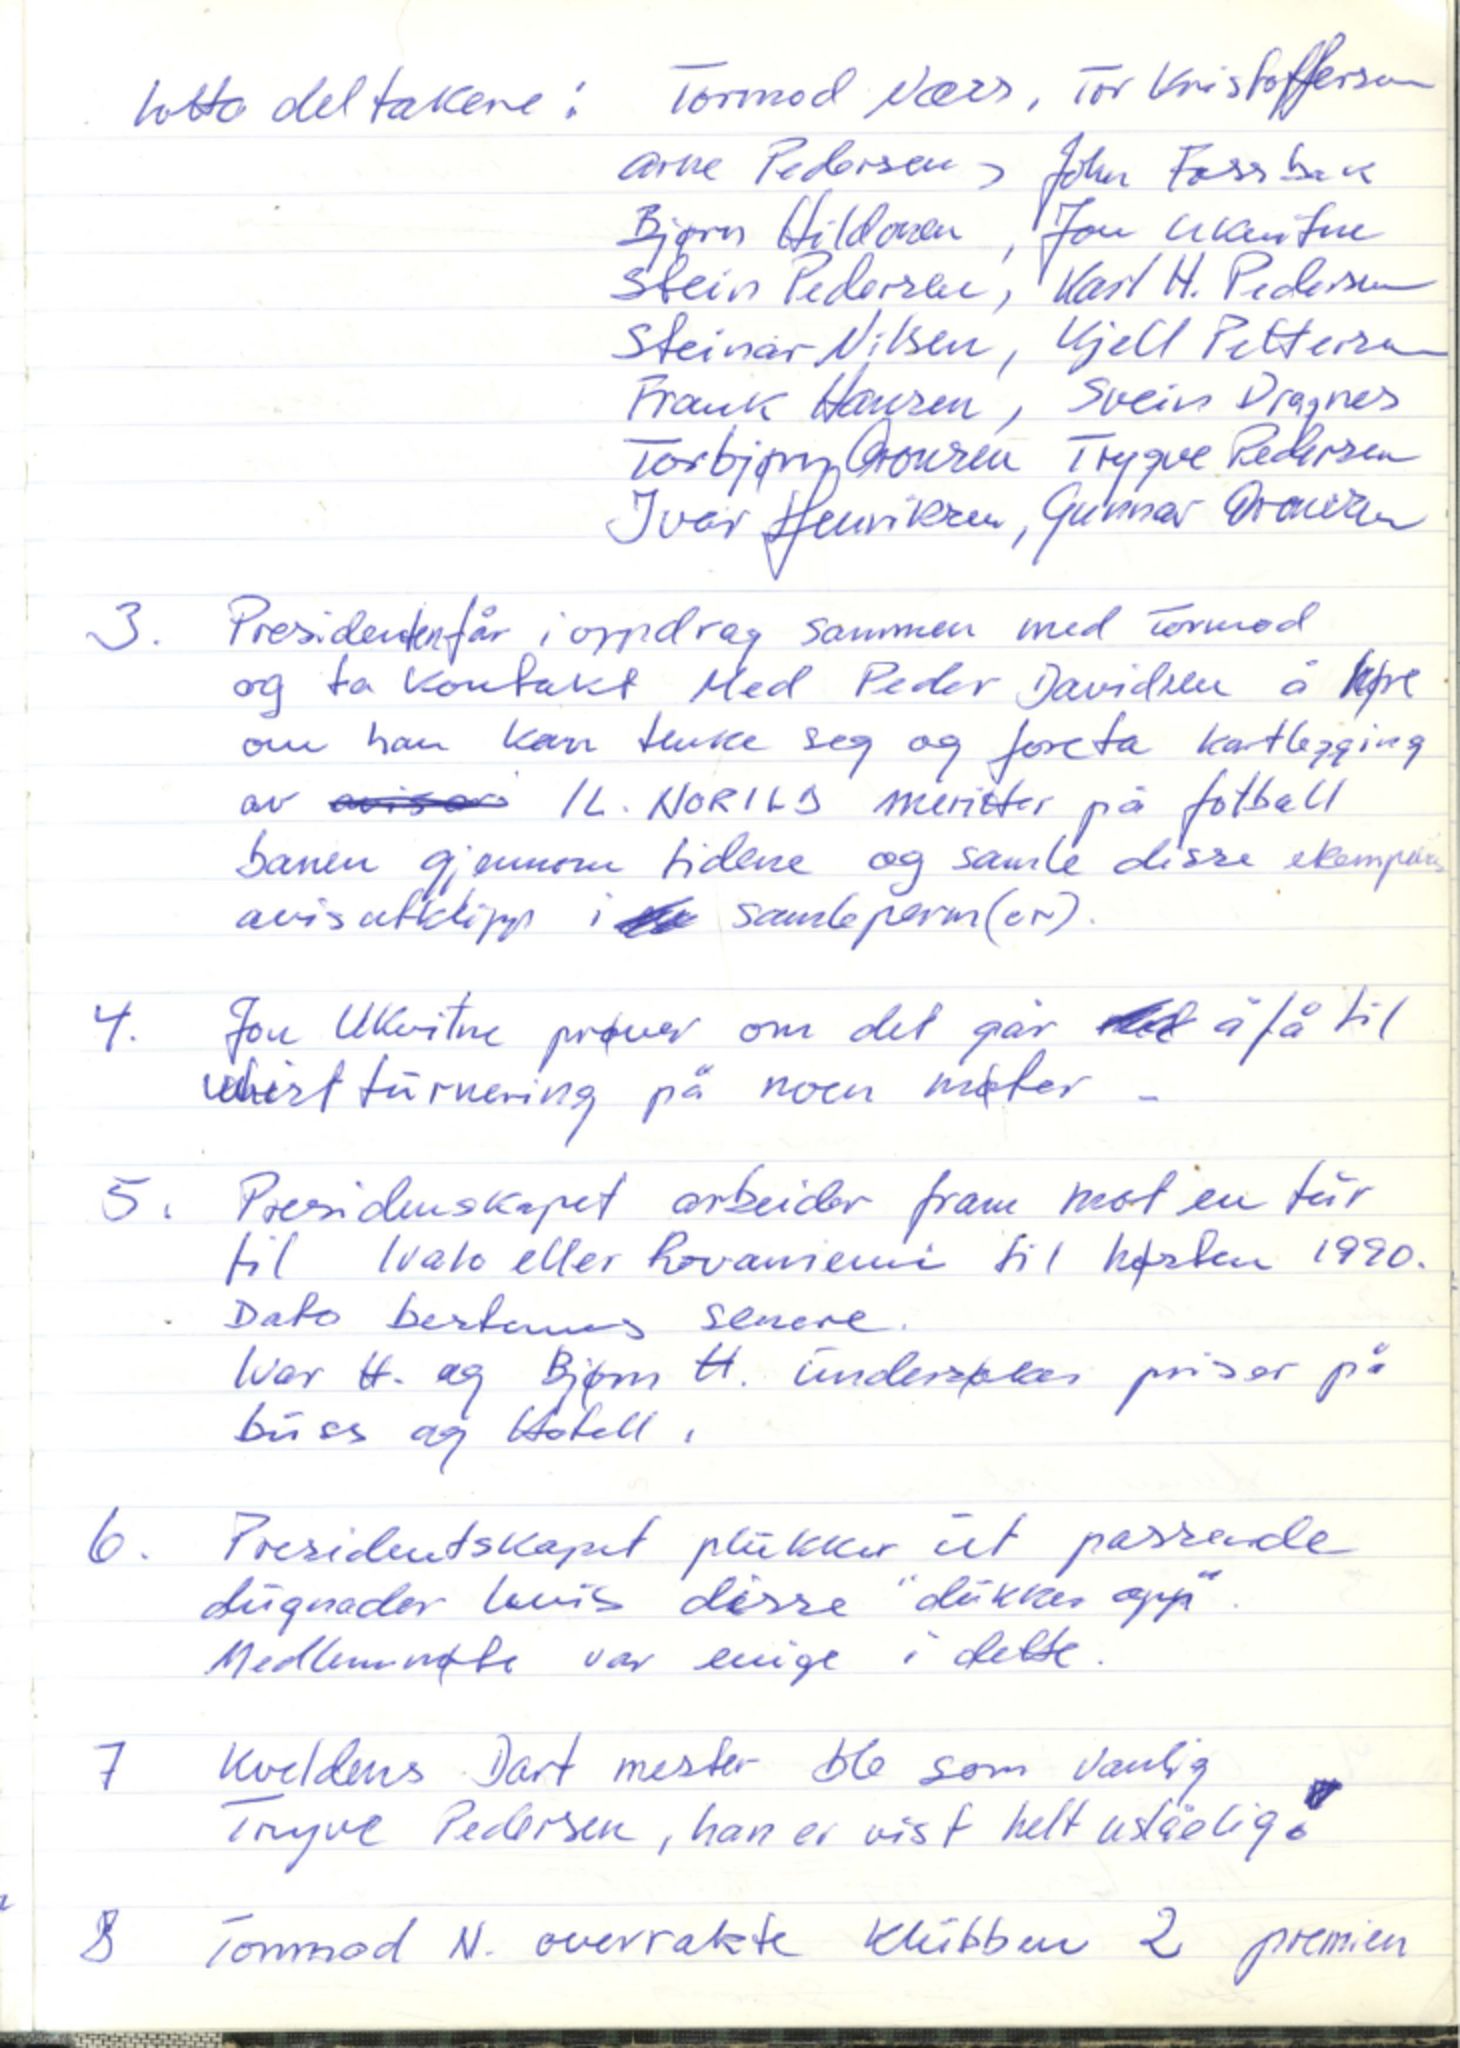 Lotto deltakere: Tormod Næss, Tor Kristoffersen
Arne Pedersen, John Fossbak
Bjørn Hildonen, Jon Ukvitne
Stein Pedersen, Karl H. Pedersen
Steinar Nilsen, Kjell Pettersen
Frank Hansen, Svein Dragnes
Torbjørn Aronsen Trygve Pedersen
Ivar Henriksen, Gunnar Aronsen
3. Presidenten får i oppdrag sammen med Tormod
og ta kontakt Med Peder Davidsen å høre
om han kan tenke seg og foreta kartlegging
av IL. NORILD meritter på fotball
banen gjennom tidene og samle disse
avisutklipp i samleperm(er).
4. Jon Ukvitne prøver om det går å få til
whist turnering på noen møter -
5. Presidenskapet arbeider fram mot en tur
til Ivalo eller Rovaniemi til høsten 1990.
Dato bestemmes senere.
Ivar H. og Bjørn H. undersøker priser på
buss og Hotell.
6. Presidentskapet plukker ut passende
dugnader hvis disse "dukker opp".
Medlemmøte var enige i dette.
7 Kveldens Dart mester ble som vanlig
Trygve Pedersen, han er vist helt uslåelig!
8 Tormod N. overrakte Klubben 2 premien